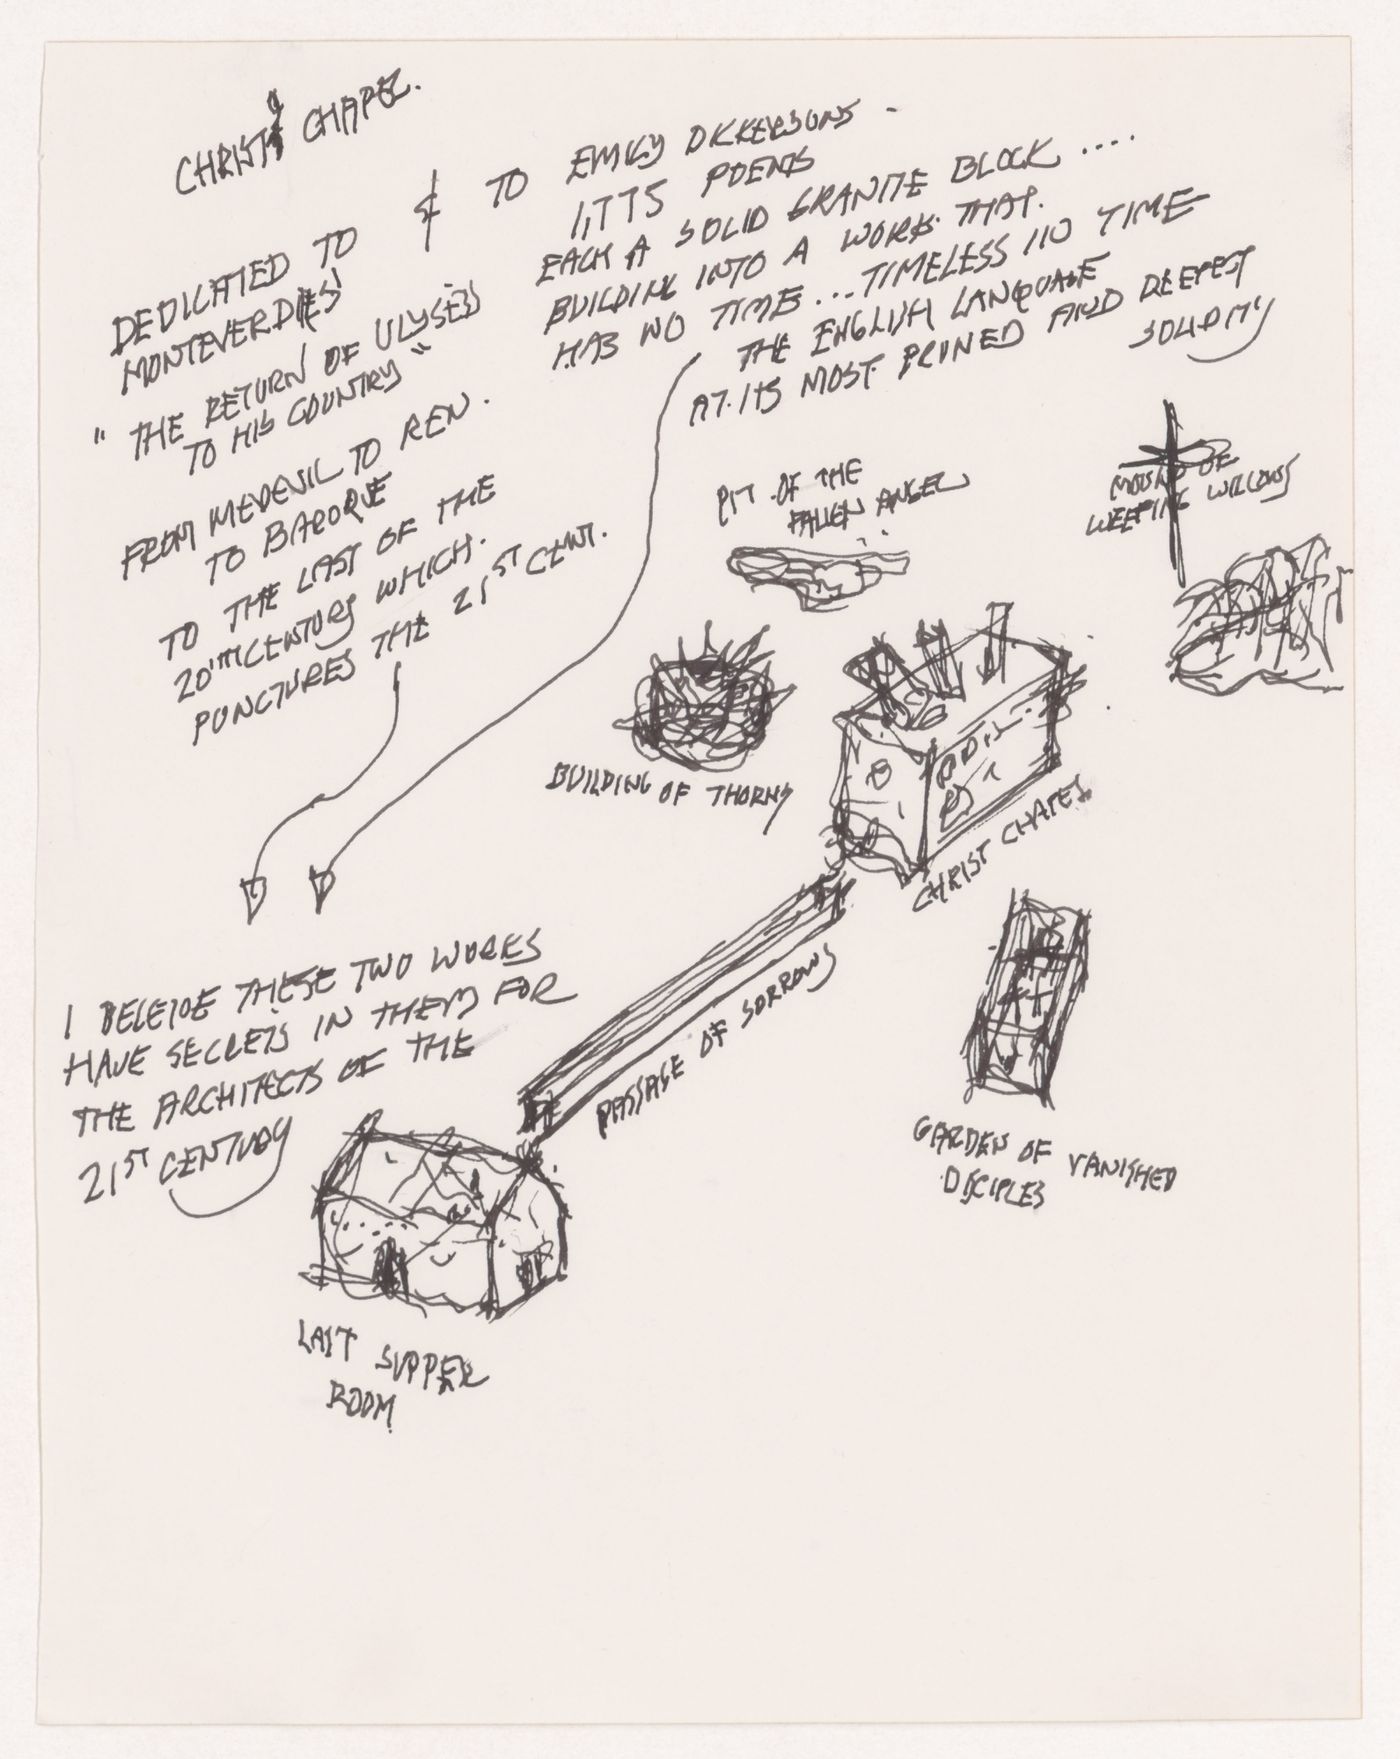 CHRIST CHAPEL.
DEDICATED TO
MONTEVERDIES
"THE RETURN OF ULYSES
TO HIS COUNTRY"
FROM MEDEVIL TO REN.
TO BAROQUE
TO THE LAST OF THE
20TH CENTURY WHICH.
PUNCTURES THE 21ST CENT.
& TO EMILY DICKERSONS -
1,775 POEMS
EACH A SOLID GRANITE BLOCK ....
BUILDING INTO A WORK THAT.
HAS NO TIME...TIMELESS IN TIME
THE ENGLISH LANGUAGE
AT ITS MOST PRUNED AND DEEPEST
SOLIDITY
I BELEIVE THESE TWO WORKS
HAVE SECRETS IN THEM FOR
THE ARCHITECTS OF THE
21ST CENTURY
PIT OF THE
FALLEN ANGEL
MOUND OF
WEEPING WILLOWS
BUILDING OF THORNS
CHRIST CHAPEL
PASSAGE OF SORROWS
GARDEN OF VANISHED
DISCIPLES
LAST SUPPER
ROOM